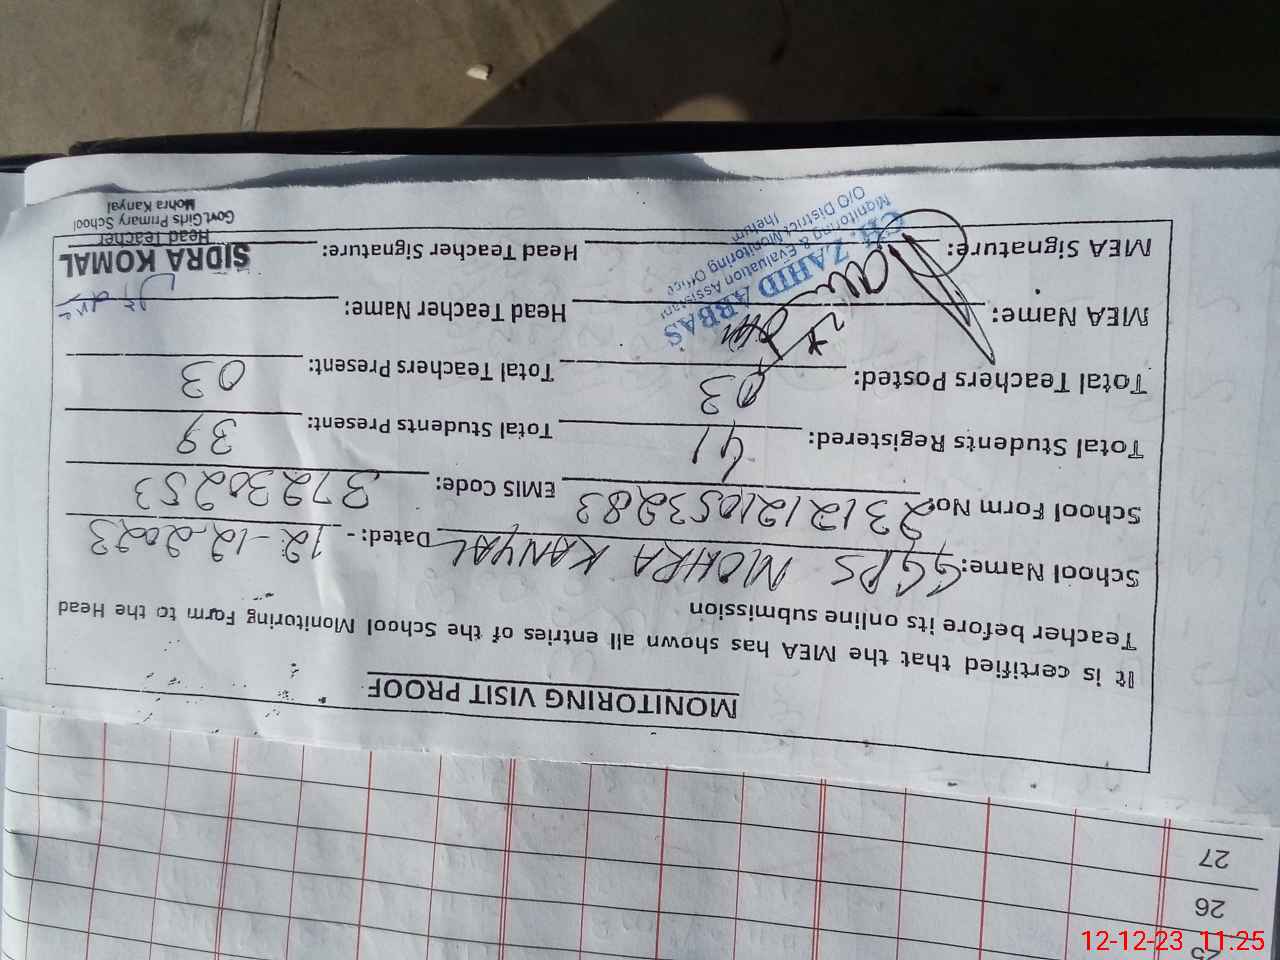 MONITORING VISIT PROOF
It is certified that the MEA has shown all entries of the School Monitoring Form to the Head
Teacher before its online submission
School Name: GGPS MOHRA KANYAL Dated: - 12-12-2023
School Form No. 2312121053283 EMIS Code: 37230253
Total Students Registered: 41 Total Students Present: 39
Total Teachers Posted: 03 Total Teachers Present: 03
MEA Name: Head Teacher Name:
MEA Signature: Head Teacher Signature:
CH. ZAHID ABBAS
Monitoring & Evaluation Assistant
O/O District Monitoring Office
Jhelum
SIDRA KOMAL
Head Teacher
Govt.Girls Primary School
Mohra Kanyal
27
26
25
12-12-23 11:25